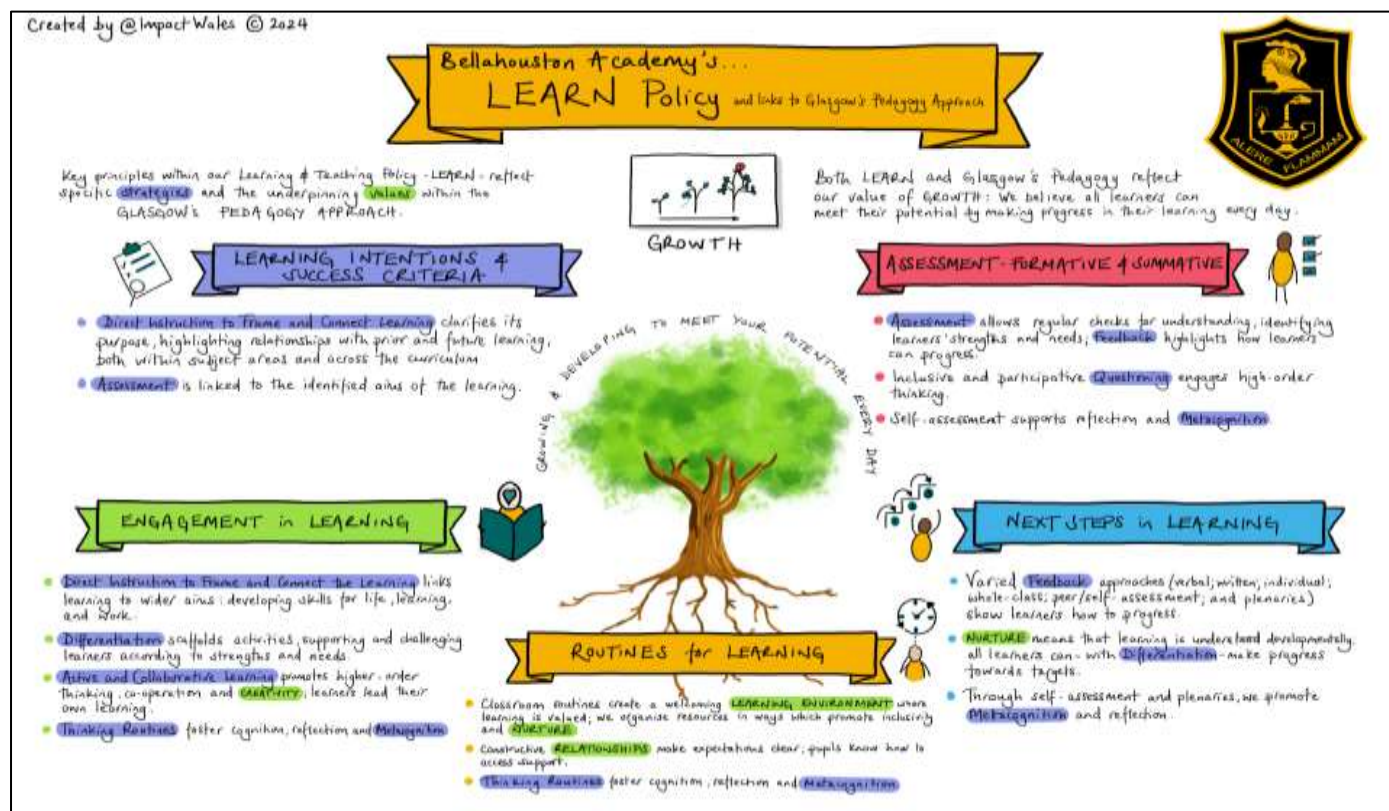 Created by @ImpactWales © 2024
Bellahouston Academy's...
LEARN Policy and links to Glasgow's Pedagogy Approach
ALERE FLAMMAM
Key principles within our Learning & Teaching Policy - LEARN - reflect
specific strategies and the underpinning values within the
GLASGOW'S PEDAGOGY APPROACH.
GROWTH
Both LEARN and Glasgow's Pedagogy reflect
our value of GROWTH: We believe all learners can
meet their potential by making progress in their learning every day.
LEARNING INTENTIONS &
SUCCESS CRITERIA
Direct Instruction to Frame and Connect Learning clarifies its
purpose, highlighting relationships with prior and future learning,
both within subject areas and across the curriculum
Assessment is linked to the identified aims of the learning.
ASSESSMENT - FORMATIVE & SUMMATIVE
Assessment allows regular checks for understanding, identifying
learners' strengths and needs; Feedback highlights how learners
can progress.
Inclusive and participative Questioning engages high-order
thinking.
Self-assessment supports reflection and Metacognition
GROWING & DEVELOPING TO MEET YOUR POTENTIAL EVERY DAY
ENGAGEMENT in LEARNING
Direct Instruction to Frame and Connect the Learning links
learning to wider aims: developing skills for life, learning,
and work.
Differentiation scaffolds activities, supporting and challenging
learners according to strengths and needs.
Active and Collaborative Learning promotes higher-order
thinking, co-operation and CREATIVITY; learners lead their
own learning.
Thinking Routines foster cognition, reflection and Metacognition
ROUTINES for LEARNING
Classroom routines create a welcoming LEARNING ENVIRONMENT where
learning is valued; we organise resources in ways which promote inclusivity
and NURTURE
Constructive RELATIONSHIPS make expectations clear; pupils know how to
access support.
Thinking Routines foster cognition, reflection and Metacognition
NEXT STEPS in LEARNING
Varied Feedback approaches (verbal; written; individual;
whole-class; peer/self-assessment; and plenaries)
show learners how to progress.
NURTURE means that learning is understood developmentally.
all learners can - with Differentiation - make progress
towards targets.
Through self-assessment and plenaries, we promote
Metacognition and reflection.